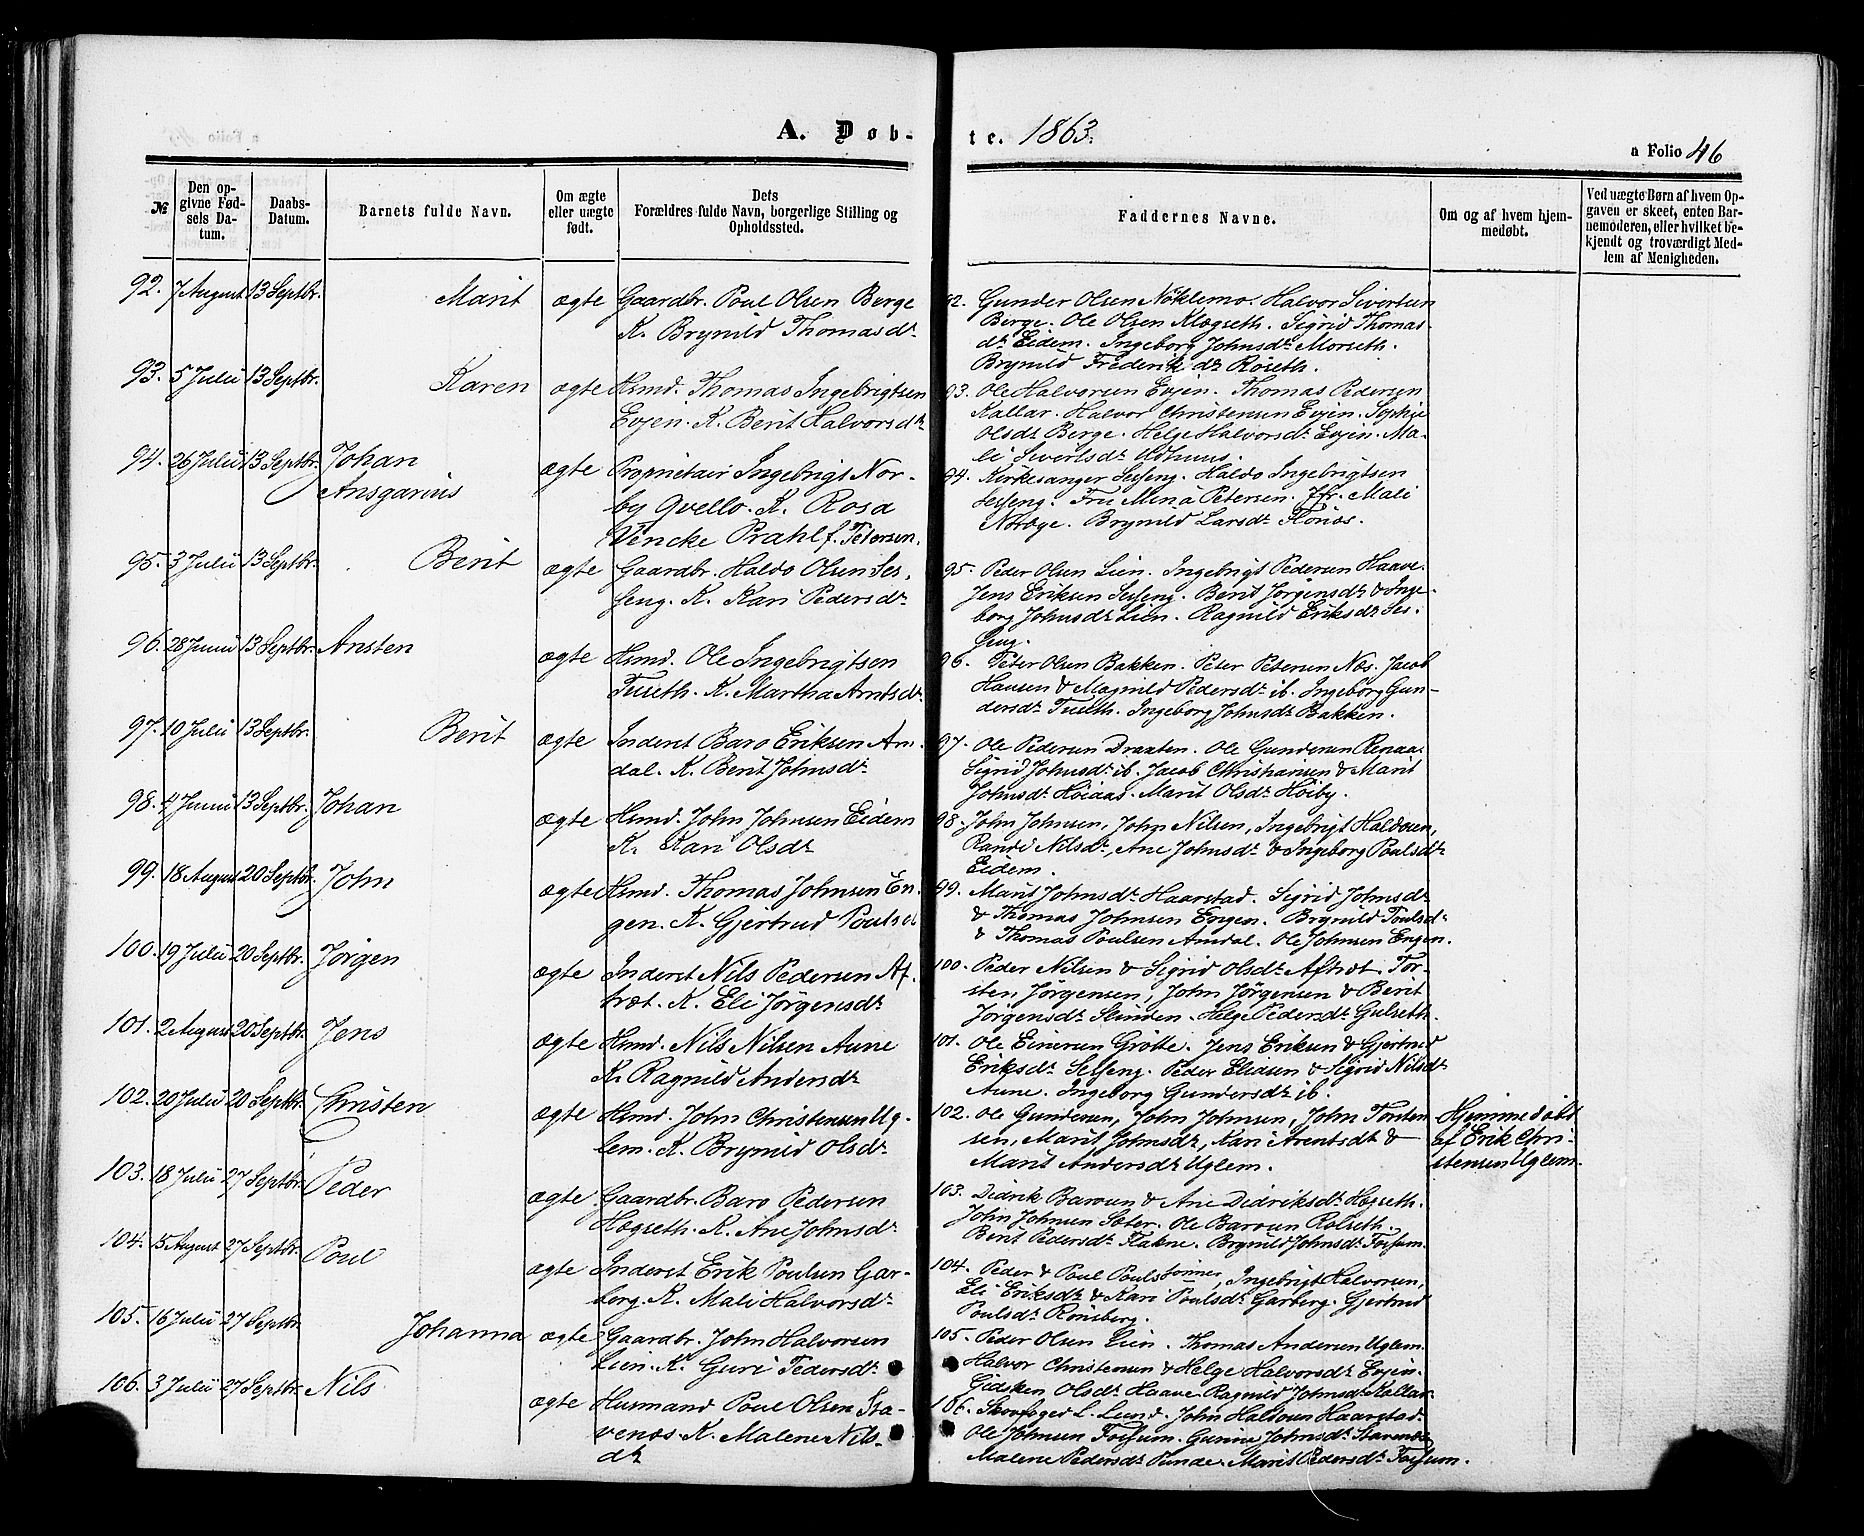 A. Døbte. 1863.
a Folio 46
№
Den opgivne Fødsels Datum.
Daabs-Datum.
Barnets fulde Navn.
Om ægte eller uægte født.
Dets Forældres fulde Navn, borgerlige Stilling og Opholdssted.
Faddernes Navne.
Om og af hvem hjemmedøbt.
Ved uægte Børn af hvem Opgaven er skeet, enten Barnemoderen, eller hvilket bekjendt og troværdigt Medlem af Menigheden.
92. 7 August 13 Septbr. Marit ægte Gaardbr. Poul Olsen Berge
K. Brynild Thomasdr.
92. Gunder Olsen Nöklemo. Halvor Sivertsen
Berge. Ole Olsen Klægseth. Sigrid Thomas-
dr Eidem. Ingeborg Johnsdr Morseth.
Brynild Frederikdr Röseth.
93. 5 Julii 13 Septbr. Karen ægte Hsmd. Thomas Ingebrigtsen
Evjen. K. Berit Halvorsdr.
93. Ole Halvorsen Evjen. Thomas Pedersen
Kallar. Halvor Christensen Evjen. Sophie
Olsdr Berge. Helge Halvorsdr Evjen. Ma-
li Sivertsdr Udhuus.
94. 26 Julii 13 Septbr. Johan
Ansgarius
ægte Proprietair Ingebrigt Nor-
by Qvello. K. Rosa
Vencke Prahl f. Petersen.
94. Kirkesanger Selseng. Haldo Ingebrigtsen
Selseng. Fru Mina Petersen. Jfr. Mali
Norøge. Brynild Larsdr Flönæs.
95. 3 Julii 13 Septbr. Berit ægte Gaardbr. Haldo Olsen Ses-
seng. K. Kari Pedersdr.
95. Peder Olsen Lien. Ingebrigt Pedersen Haave.
Jens Eriksen Selseng. Berit Jørgensdr & Inge-
borg Johnsdr Lien. Ragnild Eriksdr Ses-
seng.
96. 28 Junii 13 Septbr. Ansten ægte Hsmd. Ole Ingebrigtsen
Tuseth. K. Martha Arntsdr.
96. Peter Olsen Bakken. Peter Petersen Næs. Jacob
Hansen & Magnild Pedersdr ib. Ingeborg Gun-
dersdr Tuseth. Ingeborg Johnsdr Bakken.
97. 10 Julii 13 Septbr. Berit ægte Inderst Baro Eriksen Am-
dal. K. Berit Johnsdr
97. Ole Pedersen Draaten. Ole Gundersen Renaa.
Sigrid Johnsdr ib. Jacob Christiansen & Marit
Johnsdr Höiaas. Marit Olsdr Höiby.
98. 4 Junii 13 Septbr. Johan ægte Hsmd. John Johnsen Eidem
K. Kari Olsdr
98. John Johnsen, John Nilsen, Ingebrigt Haldosen,
Randi Nilsdr, Ane Johnsdr & Ingeborg Poulsdr
Eidem.
99. 18 August 20 Septbr. John ægte Hsmd. Thomas Johnsen En-
gen. K. Gjertrud Poulsd
99. Marit Johnsdr Haarstad. Sigrid Johnsdr
& Thomas Johnsen Engen. Brynild Poulsdr
& Thomas Poulsen Amdal. Ole Johnsen Engen.
100. 19 Julii 20 Septbr. Jørgen ægte Inderst Nils Pedersen Af-
træt. K. Eli Jørgensdr
100. Peder Nilsen & Sigrid Olsdr Aftræt. Tor-
sten Jørgensen, John Jørgensen & Berit
Jørgensdr Slinden. Helge Pedersdr Gulseth.
101. 2 August 20 Septbr. Jens ægte Hsmd. Nils Nilsen Aune
K. Ragnild Andersdr
101. Ole Einersen Grötte. Jens Eriksen & Gjertrud
Eriksdr Selseng. Peder Eliasen & Sigrid Nilsdr
Aune. Ingeborg Gundersdr ib.
102. 20 Julii 20 Septbr. Christen ægte Hsmd. John Christensen Ug-
lem. K. Brynild Olsdr
102. Ole Gundersen, John Johnsen, John Torsten-
sen, Marit Johnsdr, Kari Arentsdr &
Marit Andersdr Uglem.
Hjemmedøbt
af Erik Chri-
stensen Uglem.
103. 18 Julii 27 Septbr. Peder ægte Gaardbr. Baro Pedersen
Hægseth. K. Ane Johnsdr
103. Didrik Barosen & Ane Didriksdr Hægseth.
John Johnsen Sæter. Ole Barosen Rolseth.
Berit Pedersdr Flakne. Brynild Johnsdr Fossum.
104. 15 August 27 Septbr. Poul ægte Inderst Erik Poulsen Gar-
berg. K. Mali Halvorsdr
104. Peder & Poul Poulssönner, Ingebrigt Halvorsen,
Eli Eriksdr & Kari Poulsdr Garberg. Gjertrud
Poulsdr Rönsberg.
105. 16 Julii 27 Septbr Johanna ægte Gaardbr. John Halvorsen
Lien. K. Guri Pedersdr
105. Peder Olsen Lien. Thomas Andersen Uglem.
Halvor Christensen & Helge Halvorsdr Evjen.
Gidsken Olsdr Haave. Ragnild Johnsdr Kallar.
106. 3 Julii 27 Septbr. Nils ægte Husmand Poul Olsen Sta-
venæs K. Malene Nils-
dr
106. Skovfoged L. Lund. John Haldosen Haarstad.
Ole Johnsen Fossum. Gurine Johnsdr Stavenæs
Malene Pedersdr Punde. Marit Pedersdr Fossum.